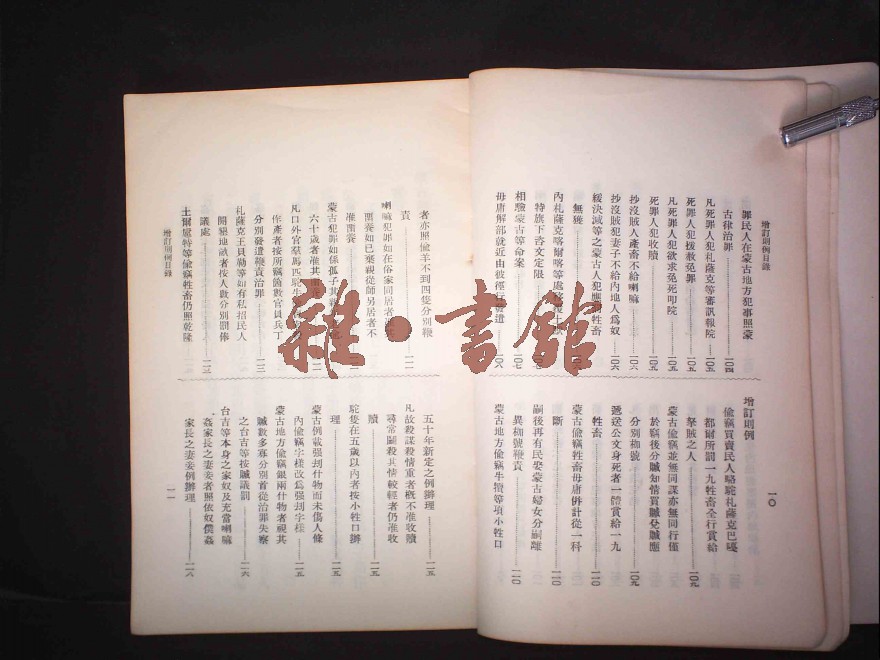 增訂則例目錄
罪民人在蒙古地方犯事照蒙
古律治罪 一〇四
凡死罪人犯札薩克等審訊報院 一〇五
死罪人犯拔救免罪 一〇五
凡死罪人犯欲求免死叩院 一〇五
死罪人犯收贖 一〇五
抄沒賊人產畜不給喇嘛 一〇六
抄沒賊犯妻子不給內地人為奴 一〇六
緩決減等之蒙古人犯應罰牲畜
無獲
內札薩克喀爾喀等處
特旗下咨文定限
相驗蒙古等命案 一〇七
毋庸解部就近由彼徑行發遣 一〇八
增訂則例
偷竊買賣民人駱駝札薩克巴嘎
都爾所罰一九牲畜全行賞給
拏賊之人 一〇九
蒙古偷竊並無同謀亦無同行僅
於竊後分贓知情買贓兌贓應
分別枷號 一〇九
遞送公文身死者一體賞給一九
牲畜 一一〇
蒙古偷竊牲畜毋庸併計從一科
斷 一一〇
嗣後再有民娶蒙古婦女分嗣離
異枷號鞭責 一一〇
蒙古地方偷竊牛犢等項小牲口
一〇
者亦照偷羊不到四隻分別鞭
責 一一一
喇嘛犯罪如在俗家同居者
留養如已棄親從師另居者不
准留養
蒙古犯罪如係孤子其
六十歲者准其留
凡口外官羣馬匹駝
作產者按所竊齒數官員兵丁
分別發遣鞭責治罪 一一三
札薩克王貝勒等如有私招民人
開墾地畝者按人數分別罰俸
議處 一一三
土爾扈特等偷竊牲畜仍照乾隆
增訂則例目錄
五十年新定之例辦理 一一五
凡故殺謀殺情重者概不准收贖
尋常鬬殺其情較輕者仍准收
贖 一一五
駝隻在五歲以內者按小牲口辦
理 一一五
蒙古例載強刦什物而未傷人條
內偷竊字樣改為強刦字樣 一一五
蒙古地方偷竊銀兩什物者視其
贓數多寡分別首從治罪失察
之台吉等按贓議罰 一一六
台吉等本身之家奴及充當喇嘛
姦家長之妻妾者照依奴僕姦
家長之妻妾例辦理 一一八
一一
雜·書館